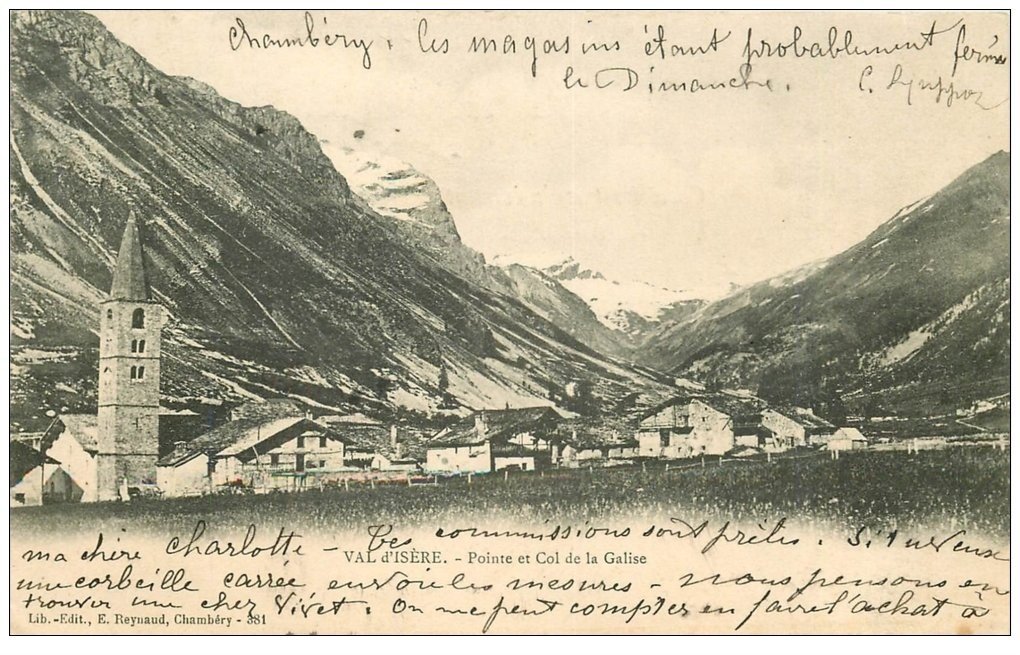 Chambéry, les magasins étant probablement fermés
le Dimanche.
ma chère Charlotte - Tes commissions sont prêtes. Si tu veux
VAL d'ISÈRE. - Pointe et Col de la Galise
une corbeille carrée envoie les mesures - nous pensons en
trouver une chez Vivet. On ne peut compter en faire l'achat à
Lib.-Edit., E. Reynaud, Chambéry - 381